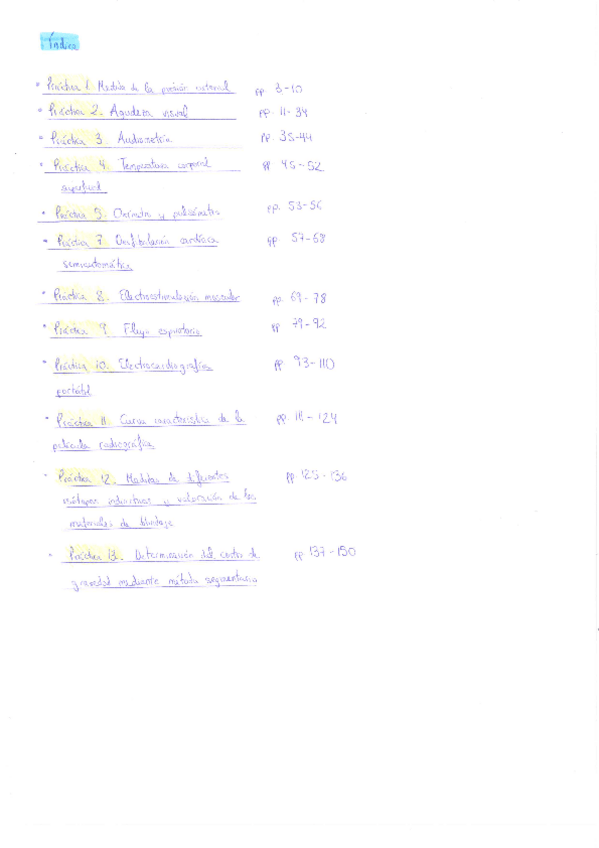 Índice
• Práctica 1. Medida de la presión arterial pp 3-10
• Práctica 2. Agudeza visual pp. 11-34
• Práctica 3. Audiometría pp. 35-44
• Práctica 4. Temperatura corporal pp 45-52
superficial
• Práctica 5. y pp. 53-56
• Práctica 7. Desfibrilación cardíaca pp 57-68
semiautomática
• Práctica 8. Electroestimulación muscular pp. 69-78
• Práctica 9. Flujo espiratorio pp 79-92
• Práctica 10. Electrocardiografía pp 93-110
portátil
• Práctica 11. Curva característica de la pp. 111-124
película radiográfica
• Práctica 12. Medidas de diferentes pp 125-136
y valoración de los
materiales de blindaje
• Práctica 13. Determinación del centro de pp 137-150
gravedad mediante método segmentario